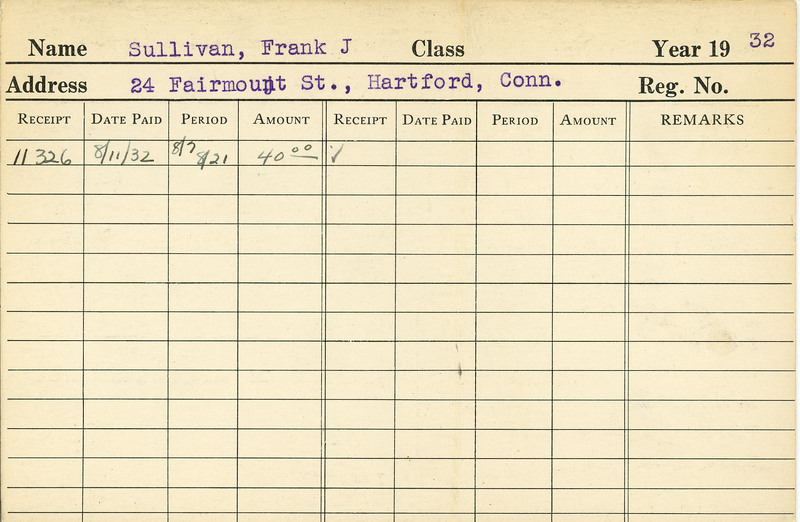 Name Sullivan, Frank J Class Year 19 32
Address 24 Fairmount St., Hartford, Conn. Reg. No.
RECEIPT DATE PAID PERIOD AMOUNT RECEIPT DATE PAID PERIOD AMOUNT REMARKS
11326 8/11/32 8/7 8/21 40 00 ✓